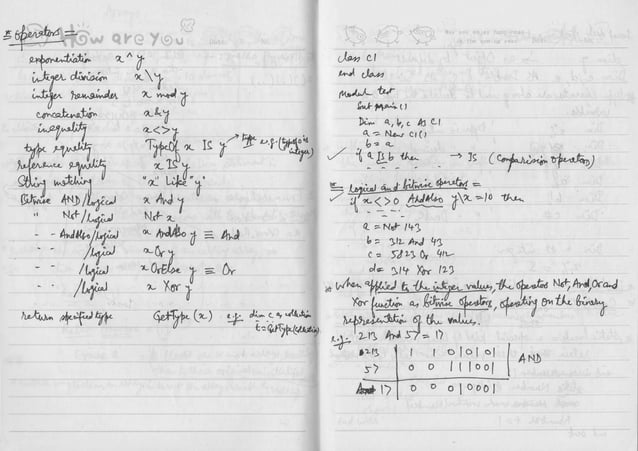 * Operators =
How are you
exponentiation x ^ y
integer division x \ y
integer remainder x mod y
concatenation x & y
inequality x <> y
type equality TypeOf x IS y → type IS e.g. (typeof o is integer)
reference equality x IS y
String matching "x" Like "y"
Bitwise AND/logical x And y
" Not/logical Not x
- - AndAlso/logical x AndAlso y ≡ And
- - /logical x Or y
- - /logical x OrElse y ≡ Or
- - /logical x Xor y
return specified type GetType (x) e.g. dim c as collection
t = GetType(collection)
class C1
end class
Module test
Sub Main ()
Dim a, b, c As C1
a = New C1()
b = a
✓ if a Is b then → IS (Comparision operators)
- - - - - -
* logical and bitwise operators =
✓ if x <> 0 AndAlso y\x = 10 then
- - - -
a = Not 143
b = 312 And 43
c = 5823 Or 412
d = 314 Xor 123
* When applied to the integer values, the operators Not, And, Or and
Xor function as bitwise operators, operating on the binary
representation of the values.
e.g. 213 And 57 = 17
213 | 1 1 0 1 0 1 0 1
57 | 0 0 1 1 1 0 0 1 AND
17 | 0 0 0 1 0 0 0 1